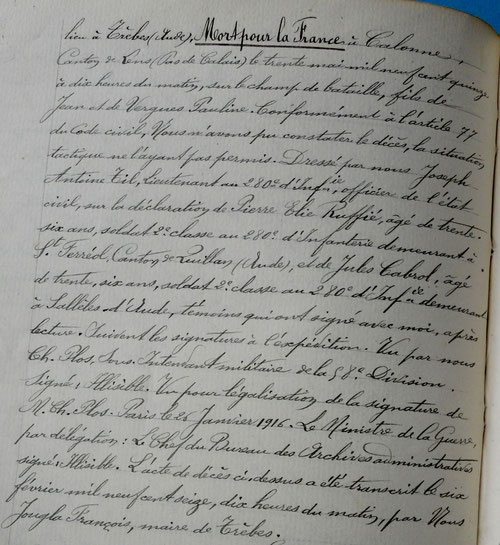 lieu à Trèbes (Aude), Mort pour la France à Calonne,
Canton de Lens (Pas de Calais) le trente mai mil neuf cent quinze
à dix heures du matin, sur le champ de bataille, fils de
Jean et de Vergues Pauline. Conformément à l'article 77
du Code civil, Nous n'avons pu constater le décès, la situation
tactique ne l'ayant pas permis. Dressé par nous Joseph
Antoine Til, Lieutenant au 280e d'Infrie, officier de l'état
civil, sur la déclaration de Pierre Elie Ruffié, âgé de trente-
six ans, soldat 2e classe au 280e d'Infanterie demeurant à
St Ferréol, Canton de Quillan (Aude), et de Jules Cabrol, âgé
de trente, six ans, soldat 2e classe au 280e d'Infrie demeurant
à Sallèles-d'Aude, témoins qui ont signé avec moi, après
lecture. Suivent les signatures à l'expédition. Vu par nous
Ch. Plos, Sous-Intendant militaire de la 58e Division.
Signé, Illisible. Vu pour légalisation de la signature de
M. Ch. Plos. Paris le 26 Janvier 1916. Le Ministre de la Guerre,
par délégation: Le Chef du Bureau des Archives administratives
signé, Illisible. L'acte de décès ci-dessus a été transcrit le six
février mil neuf cent seize, dix heures du matin, par Nous
Jougla François, maire de Trèbes.